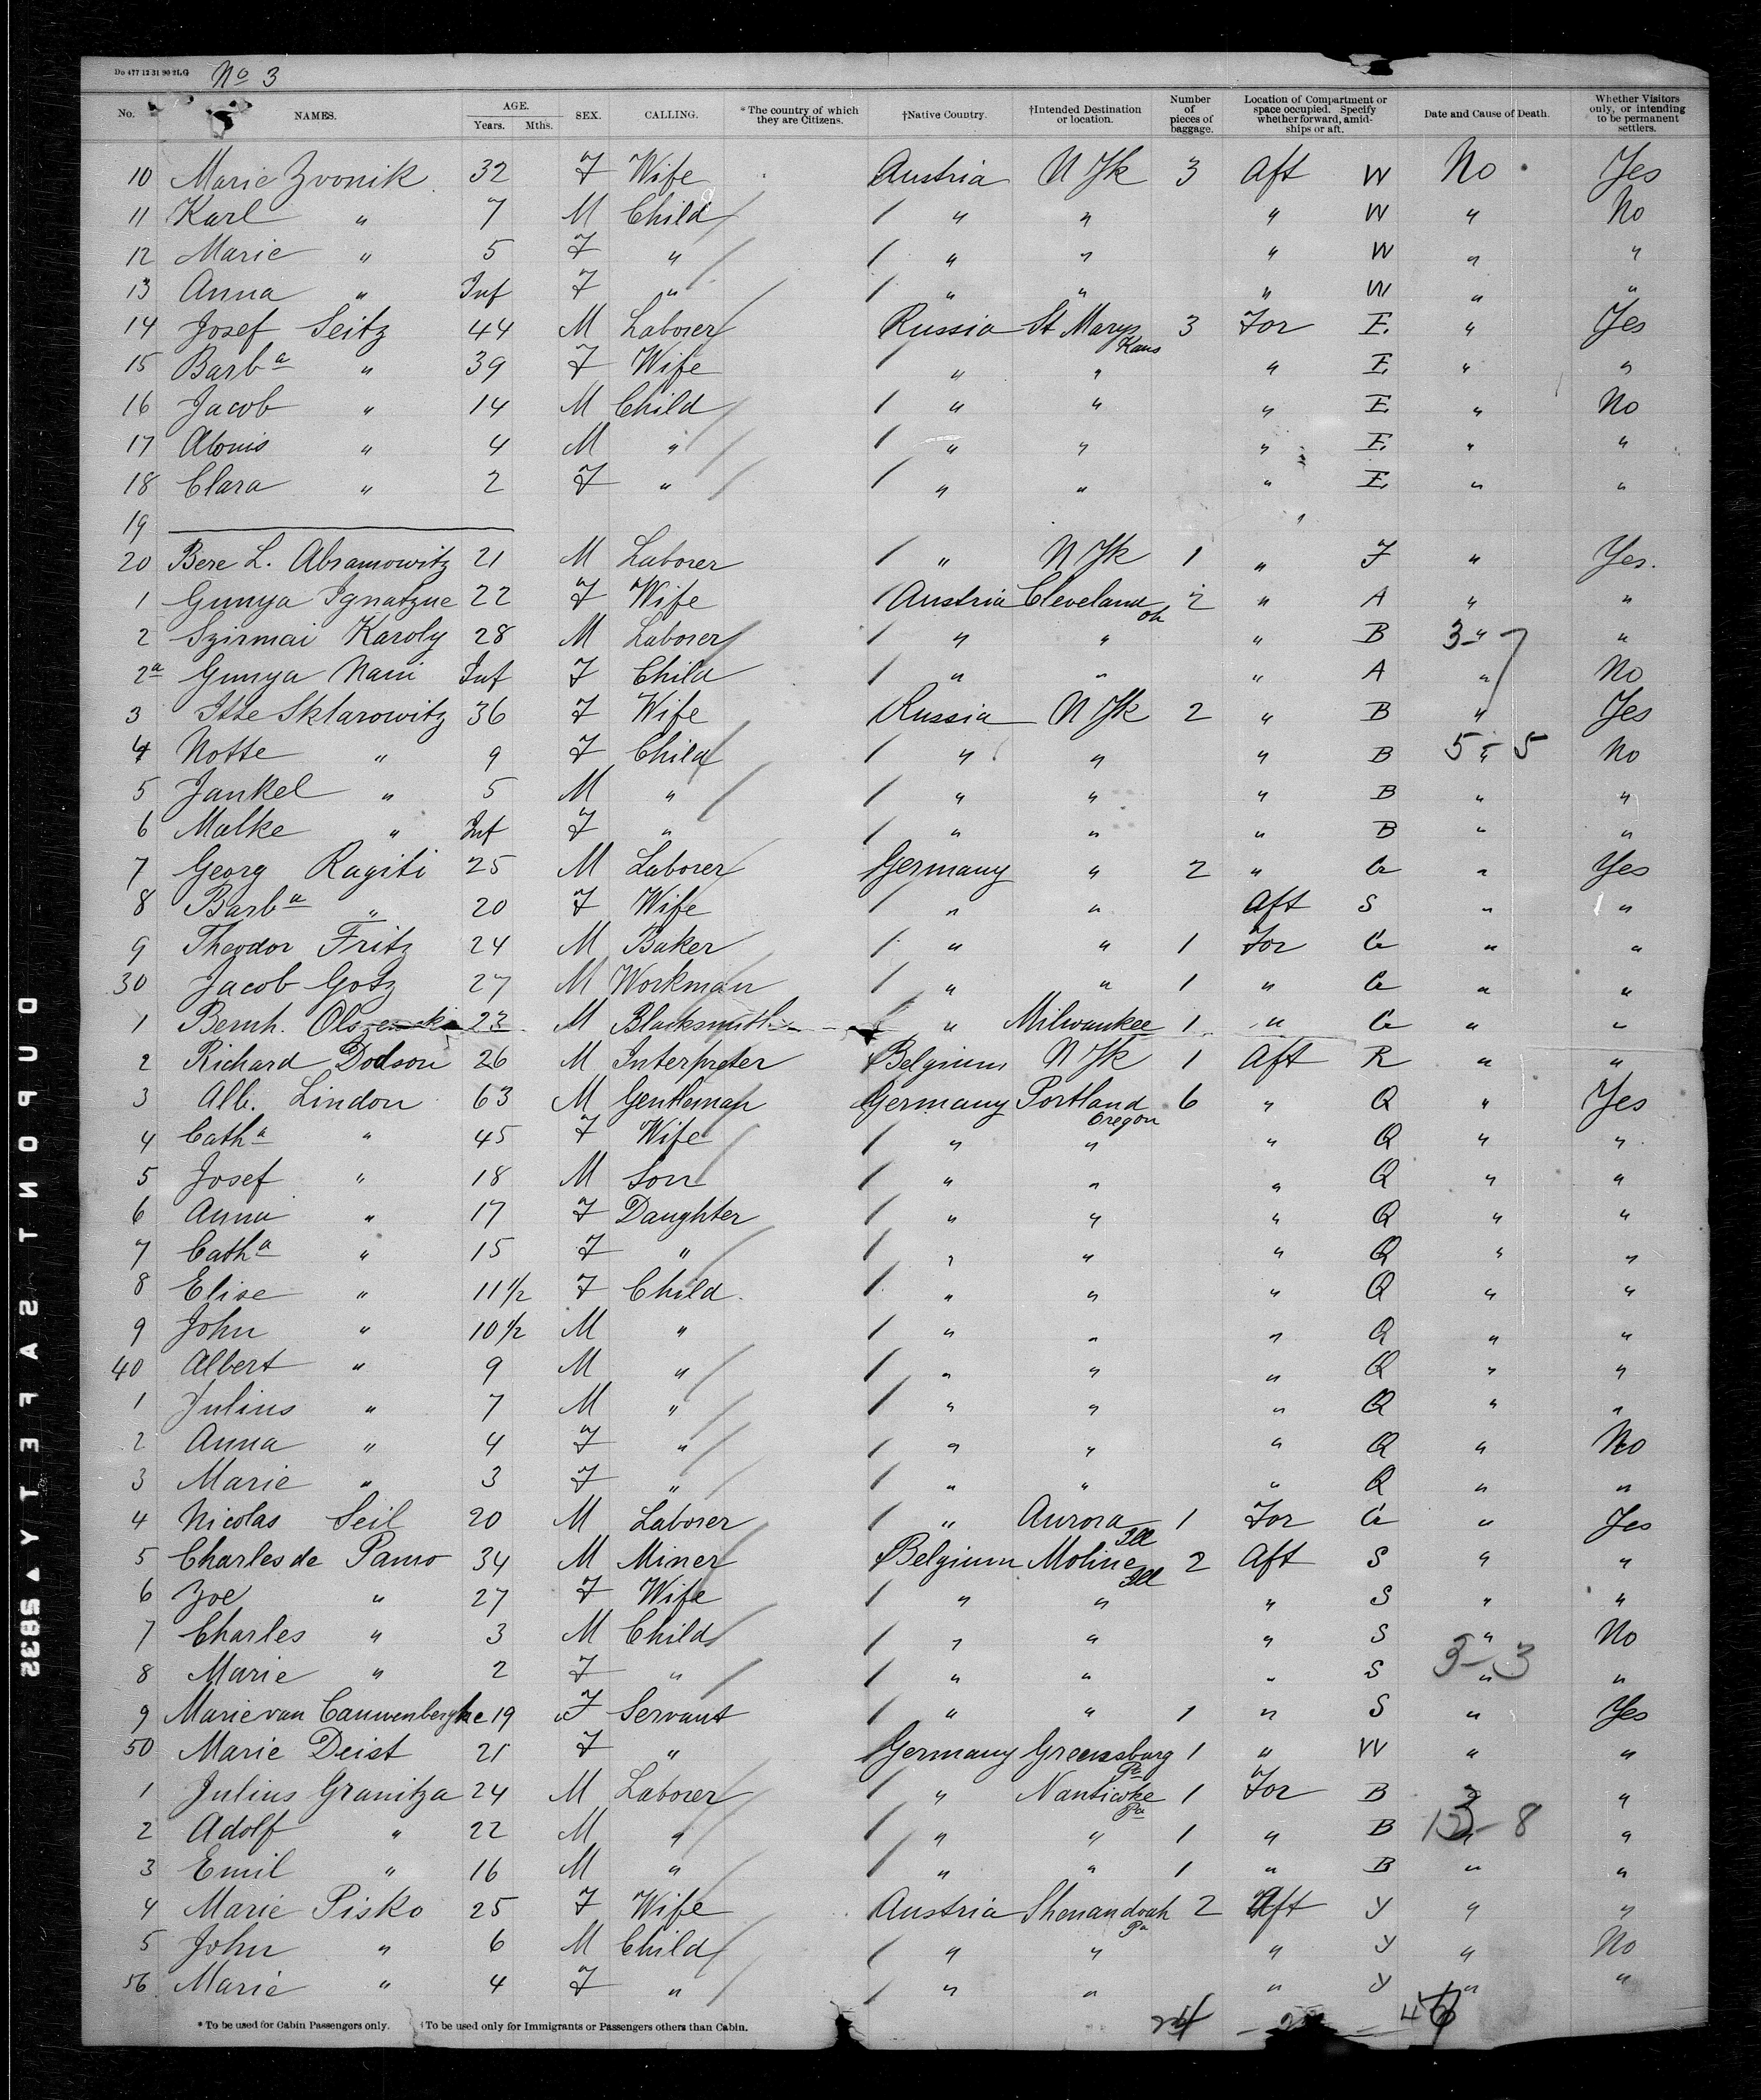 Do 477 12 31 90 2LG No 3
No. NAMES. AGE. Years. Mths. SEX. CALLING. *The country of which they are Citizens. †Native Country. †Intended Destination or location. Number of pieces of baggage. Location of Compartment or space occupied. Specify whether forward, amidships or aft. Date and Cause of Death. Whether Visitors only, or intending to be permanent settlers.
10 Marie Zvonik 32 F Wife Austria N Yk 3 Aft W No Yes
11 Karl " 7 M Child / " " " W " No
12 Marie " 5 F " / " " " W " "
13 Anna " Inf F " / " " " W " "
14 Josef Seitz 44 M Laborer Russia St Marys Kans 3 For E. " Yes
15 Barba " 39 F Wife / " " " E. " "
16 Jacob " 14 M Child / " " " E. " No
17 Alonis " 4 M " / " " " E. " "
18 Clara " 2 F " / " " " E. " "
19
20 Bere L. Abramowitz 21 M Laborer / " N Yk 1 " F " Yes.
1 Gunya Ignatzne 22 F Wife Austria Cleveland Oh 2 " A " "
2 Szirmai Karoly 28 M Laborer / " " " B 3-7 " "
2a Gunya Nani Inf F Child / " " " A " No
3 Itte Sklarowitz 36 F Wife Russia N Yk 2 " B " Yes
4 Notte " 9 F Child / " " " B 5-5 " No
5 Jankel " 5 M " / " " " B " "
6 Malke " Inf F " / " " " B " "
7 Georg Ragiti 25 M Laborer Germany " 2 " G " Yes
8 Barba " 20 F Wife / " " Aft S " "
9 Theodor Fritz 24 M Baker / " " 1 For G " "
30 Jacob Gotz 27 M Workman / " " 1 " G " "
1 Bernh. 23 M Blacksmith " Milwaukee 1 " G " "
2 Richard Dodson 26 M Interpreter Belgium N Yk 1 Aft R " "
3 Alb. Lindon 63 M Gentleman Germany Portland Oregon 6 " Q " Yes
4 Catha " 45 F Wife / " " " Q " "
5 Josef " 18 M Son / " " " Q " "
6 Anna " 17 F Daughter / " " " Q " "
7 Catha " 15 F " / " " " Q " "
8 Elise " 11 1/2 F Child / " " " Q " "
9 John " 10 1/2 M " / " " " Q " "
40 Albert " 9 M " / " " " Q " "
1 Julius " 7 M " / " " " Q " "
2 Anna " 4 F " / " " " Q " No
3 Marie " 3 F " / " " " Q " "
4 Nicolas Seil 20 M Laborer / " Aurora Ill 1 For G " Yes
5 Charles de Pamo 34 M Miner Belgium Moline Ill 2 Aft S " "
6 Zoe " 27 F Wife / " " " S " "
7 Charles " 3 M Child / " " " S " No
8 Marie " 2 F " / " " " S 3-3 " "
9 Marie van Cauwenberghe 19 F Servant / " " 1 " S " Yes
50 Marie Deist 21 F " Germany Greensburg Pa 1 " W " "
1 Julius Granitza 24 M Laborer / " Nanticoke Pa 1 For B " "
2 Adolf " 22 M " / " " 1 " B 13-8 " "
3 Emil " 16 M " / " " 1 " B " "
4 Marie Pisko 25 F Wife Austria Shenandoah Pa 2 Aft Y " "
5 John " 6 M Child / " " " Y " No
56 Marie " 4 F " / " " " Y " "
*To be used for Cabin Passengers only. †To be used only for Immigrants or Passengers others than Cabin.
DUPONT SAFETY 5832